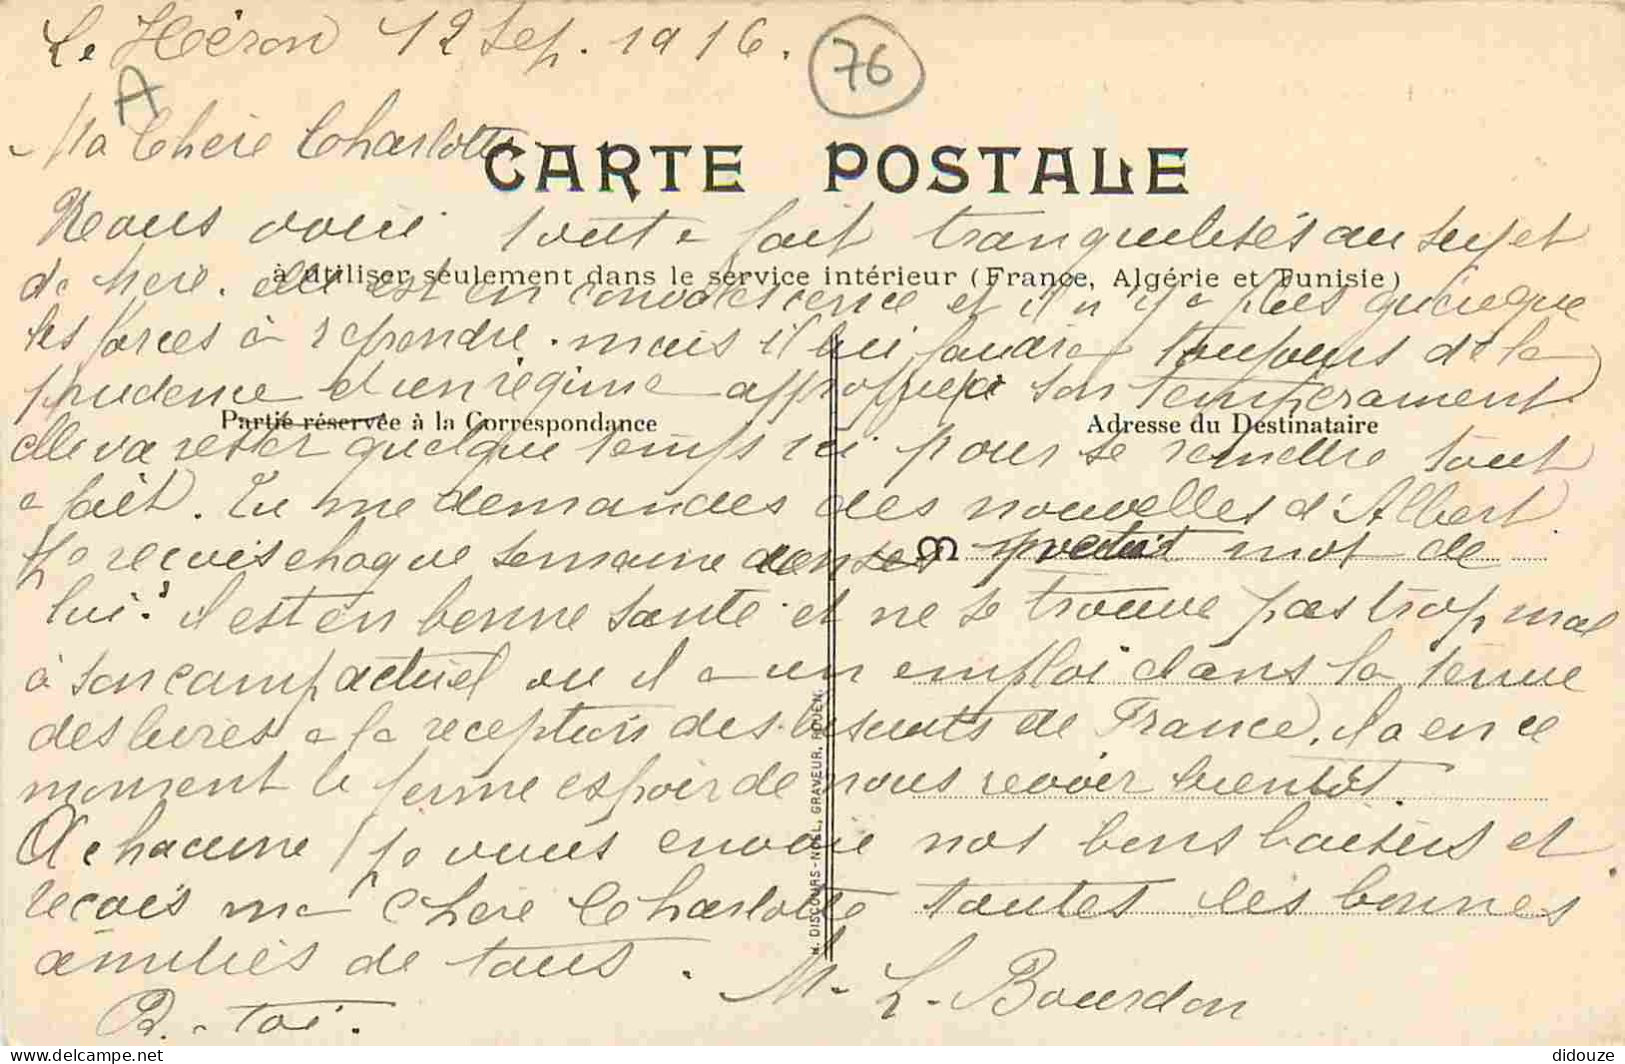 Le Héron 12 Sep. 1916.
76
A
Ma Chère Charlotte
CARTE POSTALE
Nous voici tout a fait tranquilisés au sujet
à utiliser seulement dans le service intérieur (France, Algérie et Tunisie)
de mère. elle est en convalescence et il n'y a plus guère que
les forces à reprendre. mais il lui faudra toujours de la
prudence et un régime approprié à son tempérament
Partie réservée à la Correspondance
Adresse du Destinataire
elle va rester quelque temps ici pour se remettre tout
a fait. Tu me demandes des nouvelles d'Albert
je reçois chaque semaine un petit mot de
lui. il est en bonne santé et ne se trouve pas trop mal
à son camp actuel ou il a un emploi dans la tenue
des livres a la reception des biscuits de France, il a en ce
moment le ferme espoir de nous revoir bientôt.
A chacune je vous envoie nos bons baisers et
reçois ma Chère Charlotte toutes les bonnes
amitiés de tous.
M. L. Bourdon
B. - toi.
N. DISCOURS-NOEL, GRAVEUR, ROUEN.
didouze